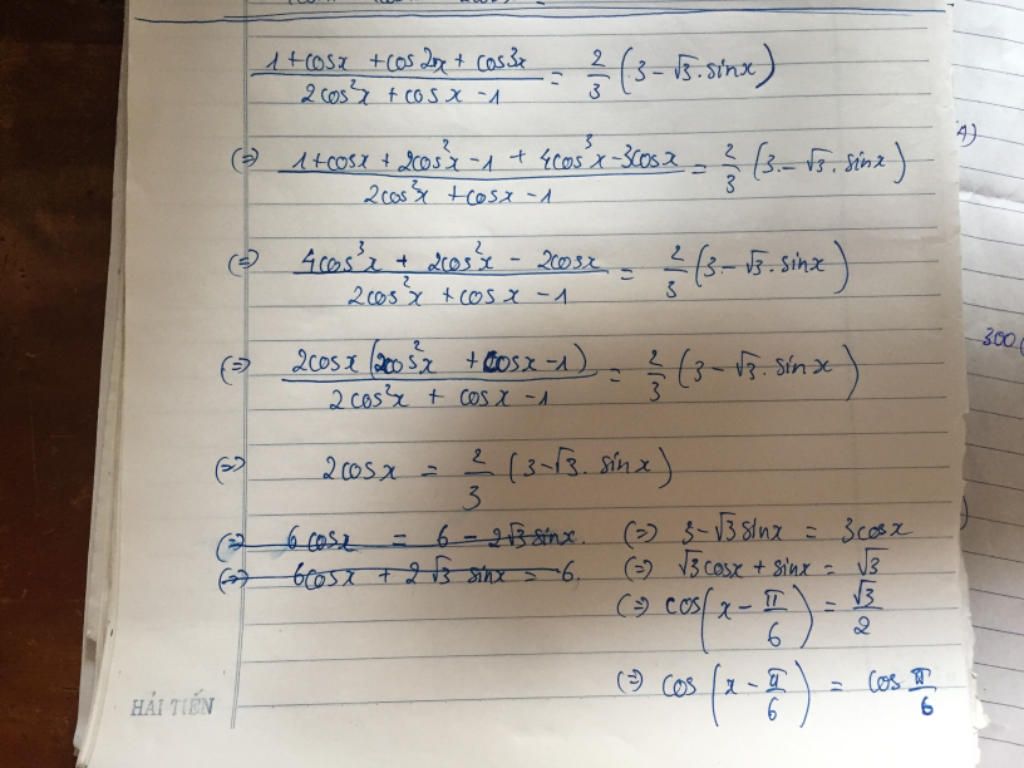 (1+cosx + cos2x + cos3x)/(2cos²x + cosx - 1) = 2/3 (3 - √3 . sinx)
(=) (1+cosx + 2cos²x - 1 + 4cos³x - 3cosx)/(2cos²x + cosx - 1) = 2/3 (3 - √3 . sinx)
4)
(=) (4cos³x + 2cos²x - 2cosx)/(2cos²x + cosx - 1) = 2/3 (3 - √3 . sinx)
300(
(=) (2cosx (2cos²x + cosx - 1))/(2cos²x + cosx - 1) = 2/3 (3 - √3 . sinx)
(=) 2cosx = 2/3 (3 - √3 . sinx)
(=) 6cosx = 6 - 2√3 sinx. (=) 3 - √3 sinx = 3cosx
(=) 6cosx + 2√3 sinx = 6. (=) √3cosx + sinx = √3
(=) cos(x - π/6) = √3/2
(=) cos(x - π/6) = cos π/6
HẢI TIẾN